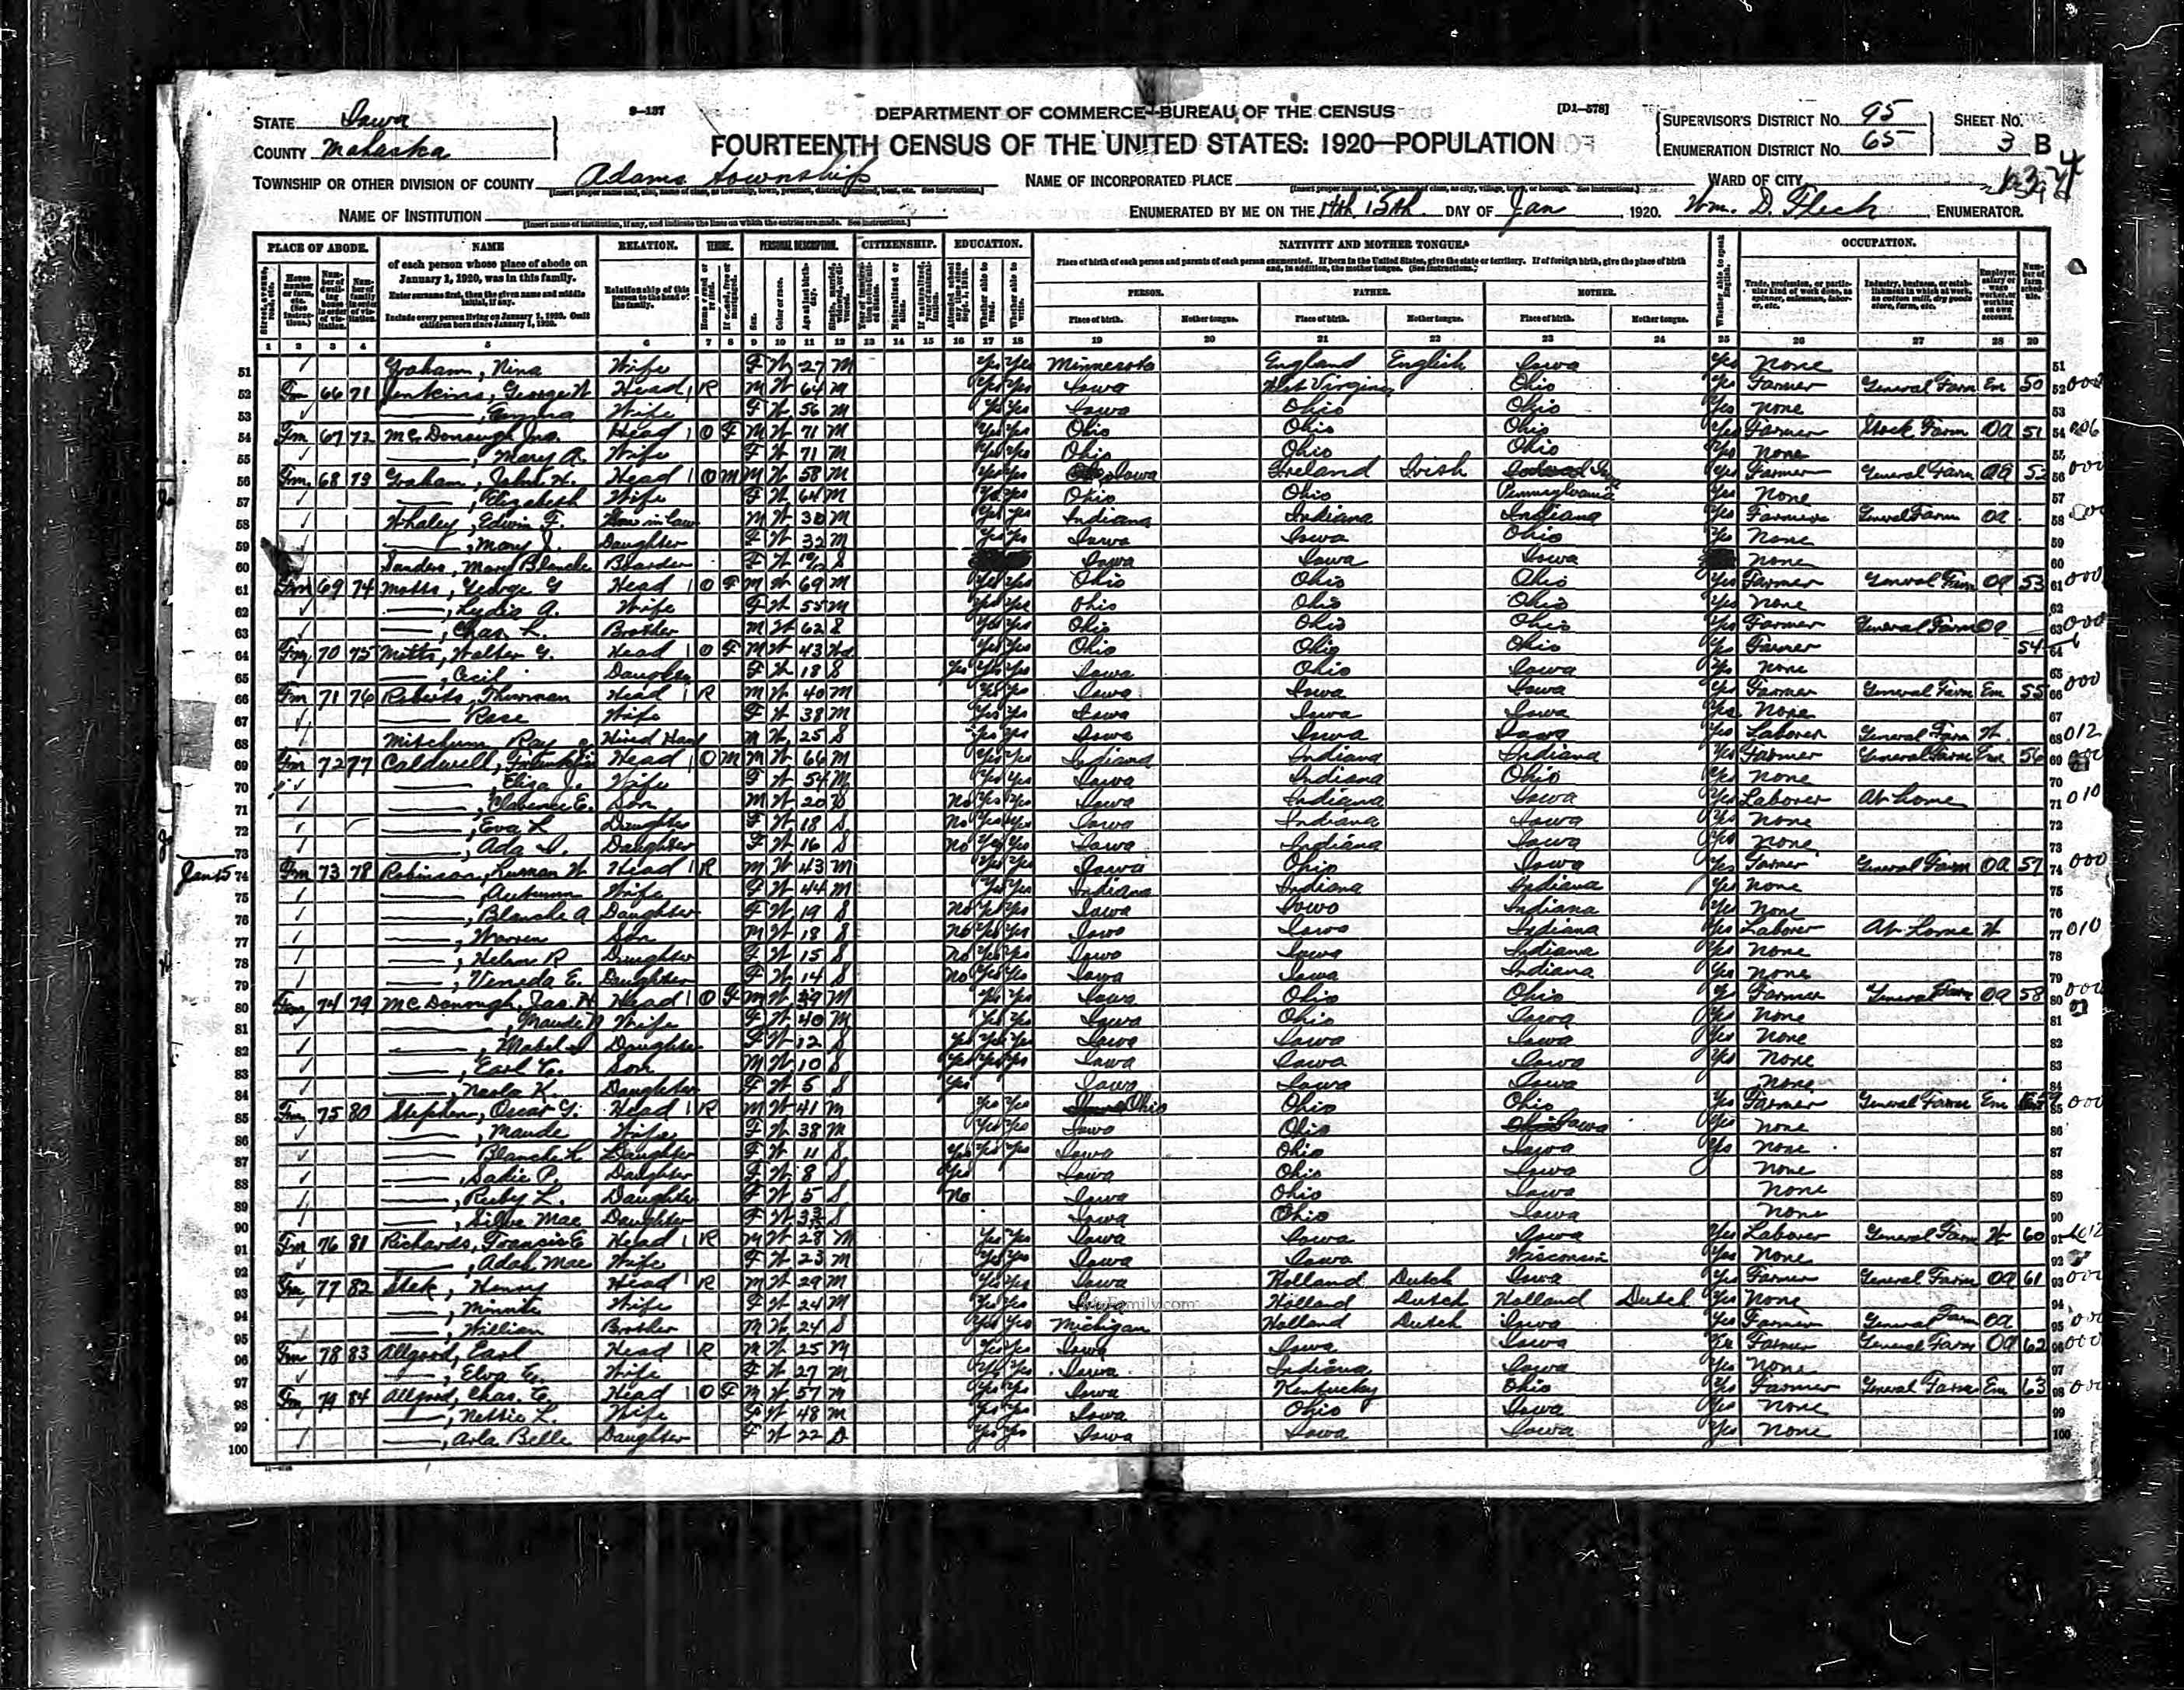 9-137 DEPARTMENT OF COMMERCE—BUREAU OF THE CENSUS [D1-578]
STATE Iowa
COUNTY Mahaska
FOURTEENTH CENSUS OF THE UNITED STATES: 1920—POPULATION
SUPERVISOR'S DISTRICT NO. 95 SHEET NO.
ENUMERATION DISTRICT NO. 65 3 B
TOWNSHIP OR OTHER DIVISION OF COUNTY Adams Township NAME OF INCORPORATED PLACE WARD OF CITY
NAME OF INSTITUTION ENUMERATED BY ME ON THE 14th 15th DAY OF Jan, 1920. Wm. D. Fleck, ENUMERATOR.
PLACE OF ABODE. NAME RELATION. TENURE. PERSONAL DESCRIPTION. CITIZENSHIP. EDUCATION. NATIVITY AND MOTHER TONGUE. OCCUPATION.
of each person whose place of abode on January 1, 1920, was in this family.
Enter surname first, then the given name and middle initial, if any.
Include every person living on January 1, 1920. Omit children born since January 1, 1920.
Relationship of this person to the head of the family.
Place of birth of each person and parents of each person enumerated. If born in the United States, give the state or territory. If of foreign birth, give the place of birth and, in addition, the mother tongue. (See instructions.)
PERSON. FATHER. MOTHER.
Place of birth. Mother tongue. Place of birth. Mother tongue. Place of birth. Mother tongue.
1 2 3 4 5 6 7 8 9 10 11 12 13 14 15 16 17 18 19 20 21 22 23 24 25 26 27 28 29
51 Graham, Nina Wife F W 27 M Yes Yes Minnesota England English Iowa Yes None 51
52 Fm 66 71 Jenkins, George W Head 1 R M W 64 M Yes Yes Iowa West Virginia Ohio Yes Farmer General Farm Em 50 52
53 —, Emma Wife F W 56 M Yes Yes Iowa Ohio Ohio Yes None 53
54 Fm 67 72 McDonough Jno. Head 1 O F M W 71 M Yes Yes Ohio Ohio Ohio Yes Farmer Stock Farm OA 51 54
55 —, Mary A. Wife F W 71 M Yes Yes Ohio Ohio Ohio Yes None 55
56 Fm 68 73 Graham, John H. Head 1 O M M W 58 M Yes Yes Iowa Ireland Irish Yes Farmer General Farm OA 52 56
57 —, Elizabeth Wife F W 64 M Yes Yes Ohio Ohio Pennsylvania Yes None 57
58 Whaley, Edwin F. Son in law M W 30 M Yes Yes Indiana Indiana Indiana Yes Farmer General Farm OA 58
59 —, Mary J. Daughter F W 32 M Yes Yes Iowa Iowa Ohio Yes None 59
60 Sanders, Mary Blanche Boarder F W S Iowa Iowa Iowa None 60
61 Fm 69 74 Motts, George G Head 1 O F M W 69 M Yes Yes Ohio Ohio Ohio Yes Farmer General Farm OA 53 61 000
62 —, Lydia A. Wife F W 55 M Yes Yes Ohio Ohio Ohio Yes None 62
63 —, Chas L. Brother M W 62 S Yes Yes Ohio Ohio Ohio Yes Farmer General Farm OA 63 000
64 Fm 70 75 Motts, Walter G. Head 1 O F M W 43 Wd Yes Yes Ohio Ohio Ohio Yes Farmer 54 64
65 —, Cecil Daughter F W 18 S Yes Yes Yes Iowa Ohio Iowa Yes None 65
66 Fm 71 76 Roberts, Thurman Head 1 R M W 40 M Yes Yes Iowa Iowa Iowa Yes Farmer General Farm Em 55 66 000
67 — Rose Wife F W 38 M Yes Yes Iowa Iowa Iowa Yes None 67
68 Mitchum Ray Hired Hand M W 25 S Yes Yes Iowa Iowa Iowa Yes Laborer General Farm W. 68 012
69 Fm 72 77 Caldwell, Head 1 O M M W 66 M Yes Yes Indiana Indiana Indiana Yes Farmer General Farm Em 56 69
70 —, Eliza J. Wife F W 54 M Yes Yes Iowa Indiana Ohio Yes None 70
71 —, Clarence E. Son M W 20 S No Yes Yes Iowa Indiana Iowa Yes Laborer At home 71 010
72 —, Eva L Daughter F W 18 S No Yes Yes Iowa Indiana Iowa Yes None 72
73 —, Ada I. Daughter F W 16 S No Yes Yes Iowa Indiana Iowa Yes None 73
Jan 15 74 Fm 73 78 Robinson, Luman W Head 1 R M W 43 M Yes Yes Iowa Ohio Iowa Yes Farmer General Farm OA 57 74 000
75 —, Autumn Wife F W 44 M Yes Yes Indiana Indiana Indiana Yes None 75
76 —, Blanche A Daughter F W 19 S No Yes Yes Iowa Iowa Indiana Yes None 76
77 —, Warren Son M W 18 S No Yes Yes Iowa Iowa Indiana Yes Laborer At home W 77 010
78 —, Helen R Daughter F W 15 S No Yes Yes Iowa Iowa Indiana Yes None 78
79 —, Veneda E. Daughter F W 14 S No Yes Yes Iowa Iowa Indiana Yes None 79
80 Fm 74 79 McDonough, Jas. H Head 1 O F M W 39 M Yes Yes Iowa Ohio Ohio Yes Farmer General Farm OA 58 80
81 —, Maude Wife F W 40 M Yes Yes Iowa Ohio Iowa Yes None 81
82 —, Mabel I Daughter F W 12 S Yes Yes Yes Iowa Iowa Iowa Yes None 82
83 —, Earl C. Son M W 10 S Yes Yes Yes Iowa Iowa Iowa Yes None 83
84 —, Neola K. Daughter F W 5 S Yes Iowa Iowa Iowa None 84
85 Fm 75 80 Stephen, Oscar G. Head 1 R M W 41 M Yes Yes Ohio Ohio Ohio Yes Farmer General Farm Em 85 000
86 —, Maude Wife F W 38 M Yes Yes Iowa Ohio Iowa Yes None 86
87 — Blanche L Daughter F W 11 S Yes Yes Yes Iowa Ohio Iowa Yes None 87
88 — Sadie P. Daughter F W 8 S Yes Iowa Ohio Iowa None 88
89 —, Ruby L. Daughter F W 5 S No Iowa Ohio Iowa None 89
90 —, Silva Mae Daughter F W S Iowa Ohio Iowa None 90
91 Fm 76 81 Richards, Francis E Head 1 R M W 28 M Yes Yes Iowa Iowa Iowa Yes Laborer General Farm W 60 91
92 —, Adah Mae Wife F W 23 M Yes Yes Iowa Iowa Wisconsin Yes None 92
93 Fm 77 82 Stek, Henry Head 1 R M W 29 M Yes Yes Iowa Holland Dutch Iowa Yes Farmer General Farm OA 61 93
94 —, Minnie Wife F W 24 M Yes Yes Holland Dutch Holland Dutch Yes None 94
95 —, William Brother M W 24 S Yes Yes Michigan Holland Dutch Iowa Yes Farmer General Farm OA 95
96 Fm 78 83 Allgood, Earl Head 1 R M W 25 M Yes Yes Iowa Iowa Iowa Yes Farmer General Farm OA 62 96 000
97 —, Elva E. Wife F W 27 M Yes Yes Iowa Indiana Iowa Yes None 97
98 Fm 79 84 Allgood, Chas. E. Head 1 O F M W 57 M Yes Yes Iowa Kentucky Ohio Yes Farmer General Farm Em 63 98
99 —, Nettie L. Wife F W 48 M Yes Yes Iowa Ohio Iowa Yes None 99
100 —, Arla Belle Daughter F W 22 D Yes Yes Iowa Iowa Iowa Yes None 100